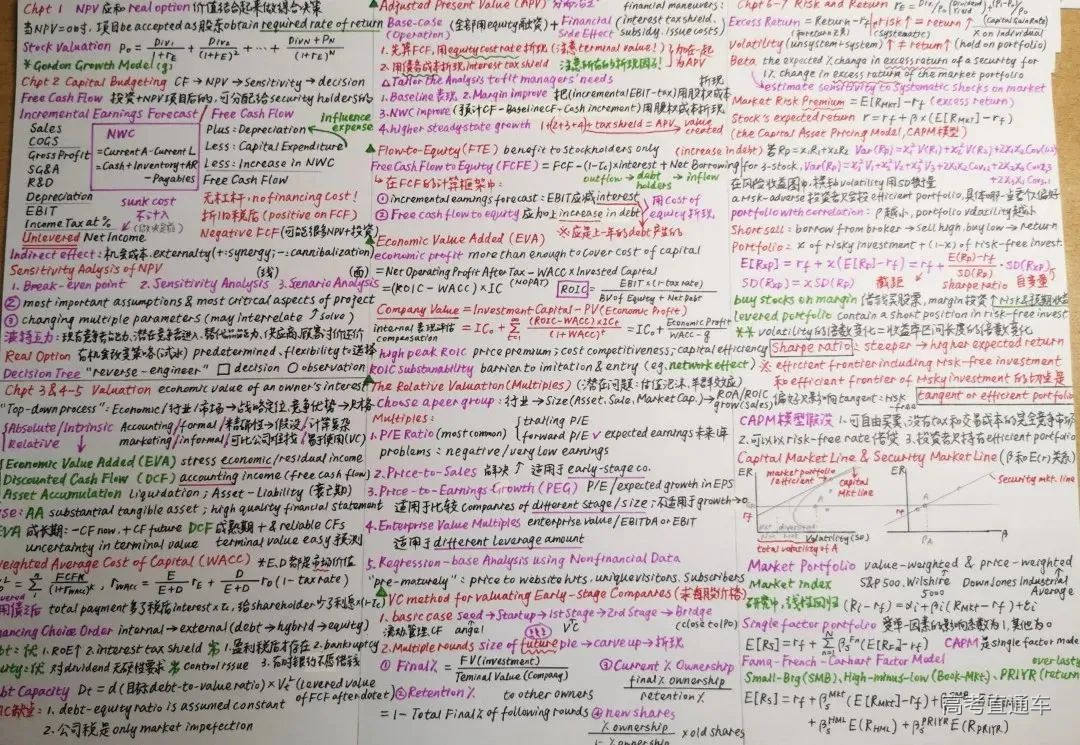 Chpt 1 NPV 应和 real option 价值结合起来做综合决策
当NPV=0时，项目be accepted as 股东obtain required rate of return
Stock Valuation P₀ = Div₁/(1+rE) + Div₂/(1+rE)² + ··· + (DivN+PN)/(1+rE)^N
*Gordon Growth Model (g)
Chpt 2 Capital Budgeting CF → NPV → Sensitivity → decision
Free Cash Flow 投资+NPV项目后的，可分配给security holders的
Incremental Earnings Forecast / Free Cash Flow
influence expense
Sales
COGS
Gross Profit
SG&A
R&D
Depreciation
EBIT
Income Tax at %
Unlevered Net Income
NWC
=Current A-Current L
=Cash+Inventory+AR
-Payables
sunk cost
不计入
Plus: Depreciation
Less: Capital Expenditure
Less: Increase in NWC
Free Cash Flow
无杠杆，no financing cost!
折旧税盾 (positive on FCF)
Negative FCF (可能很多NPV+投资)
Indirect effect: 机会成本. externality (+: synergy; -: cannibalization)
Sensitivity Aalysis of NPV (线) (面)
1. Break-even point 2. Sensitivity Analysis 3. Senario Analysis
② most important assumptions & most critical aspects of project
③ changing multiple parameters (may interrelate solve)
Real Option predetermined, flexibility to 选择
Decision Tree "reverse-engineer" □ decision ○ observation
Chpt 3&4-5 Valuation economic value of an owner's interest
"Top-down process": Economic/行业/市场→战略定位，竞争优势→风格
Absolute/Intrinsic Accounting/formal/精确性→假设/计算复杂
Relative marketing/informal/可比公司难找/易于使用(VC)
Economic Value Added (EVA) stress economic/residual income
Discounted Cash Flow (DCF) accounting income (free cash flow)
Asset Accumulation liqurdation; Asset-Liability
AA substantial tangible asset; high quality financial statement
EVA 成长期: -CF now, +CF future DCF 成熟期 + & reliable CFs
uncertainty in terminal value terminal value easy 预测
Weighted Average Cost of Capital (WACC) *E.D都是市场价值
rwacc = E/(E+D) rE + D/(E+D) rD (1-tax rate)
total payment 多了税后interest×τc, 给shareholder少了
Financing Choice Order internal→external (debt→hybrid→equity)
1. ROE↑ 2. interest tax shield
2. bankruptcy
对dividend无硬性要求 control issue
Debt Capacity Dt = d (目标debt-to-value ratio) × (levered value of FCF after date t)
1. debt-equity ratio is assumed constant
2. 公司税是only market impefection
Adjusted Present Value (APV)
Base-case (全部用equity融资) + Financial
(Operation) Side Effect
financial maneuvers:
(interest tax shield,
subsidy, issue costs)
1. 先算FCF, 用equity cost rate折现 (注意terminal value!)
2. 用债务成本折现interest tax shield
加在一起
为APV
△Tailor the Analysis to fit managers' needs
1. Baseline 表现 2. Margin improve 把(incremental EBIT-tax)用股权成本折现
3. NWC improve (预计CF-Baseline CF-Cash increment) 用股权成本折现
4. higher steady state growth 1+(2+3+4)+tax shield = APV value created
Flow-to-Equity (FTE) benefit to stockholders only (increase in debt)
Free Cash Flow to Equity (FCFE) = FCF-(1-τc)×interest + Net Borrowing
outflow → debt holders → inflow
在FCF的计算框架中:
① incremental earnings forecast: EBIT应减interest
② Free cash flow to equity 应加上increase in debt
用cost of equity折现.
※应是上一年的debt产生的
Economic Value Added (EVA)
economic profit more than enough to cover cost of capital
= Net Operating Profit After Tax - WACC × Invested Capital
= (ROIC-WACC)×IC (NOPAT)
ROIC = EBIT×(1-tax rate)/(BV of Equity + Net Debt)
Company Value = Investment Capital + PV(Economic Profit)
internal 表现评估 compensation
= IC₀ + Σ (ROIC-WACC)×ICt/(1+WACC)^t = IC₀ + Economic Profit/(WACC-g)
high peak ROIC price premium; cost competitiveness; capital efficiency
ROIC substanability barrier to imitation & entry (eg. network effect)
The Relative Valuation (Multiples) (潜在问题: 估值泡沫, 羊群效应)
Choose a peer group: 行业→Size (Asset, Sale, Market Cap.)→ROA/ROIC grow(sales)
Multiples:
1. P/E Ratio (most common) trailing P/E
forward P/E ✓ expected earnings 未来1年
problems: negative/very low earnings
2. Price-to-Sales 适用于early-stage co.
3. Price-to-Earnings Growth (PEG) P/E / expected growth in EPS
适用于比较companies of different stage/size; 不适用于growth→0
4. Enterprise Value Multiples enterprise value/EBITDA or EBIT
适用于different leverage amount
5. Regression-base Analysis using Nonfinancial Data
"pre-maturely": price to website hits, unique visitors, Subscribers
VC method for valuating Early-Stage Companies
1. basic case seed→startup→1st Stage→2rd Stage→Bridge
angel VC (close to IPO)
2. Multiple rounds size of future pie→carve up→折现
① Final% = FV(investment)/Teminal Value (Company)
② Retention% to other owners
= 1-Total Final% of following rounds
③ Current % Ownership
final% ownership/retention%
④ new shares
% ownership/1-% ownership × old shares
Chpt 6-7 Risk and Return
Excess Return = Return-rf
risk↑ = return↑
(systematic)
(Capital Gain Rate)
× on Individual
Volatility (unsystem+system)↑ ≠ return↑ (hold on portfolio)
Beta the expected % change in excess return of a security for
1% change in excess return of the market portfolio
estimate sensitivity to Systematic Shocks on market
Market Risk Premium = E[RMkt]-rf (excess return)
Stock's expected return r = rf+β×(E[RMkt]-rf)
(the Capital Asset Pricing Model, CAPM模型)
若Rp=x₁R₁+x₂R₂ Var(Rp)=x₁²V(R₁)+x₂²V(R₂)+2x₁x₂Cov(1,2)
for 3-stock, Var(Rp)=x₁²V₁+x₂²V₂+x₃²V₃+2x₁x₂Cov₁,₂+2x₂x₃Cov₂,₃+2x₁x₃Cov₃,₁
在风险收益图中，横轴volatility用SD数值
a risk-adverse 投资者只会投efficient portfolio, 具体哪一点看个人偏好
portfolio with correlation: ρ越小, portfolio volatility越小
Short sell: borrow from broker→sell high, buy low→return
Portfolio: x of risky investment + (1-x) of risk-free invest.
E[Rxp] = rf + x(E[Rp]-rf) = rf + (E(Rp)-rf)/SD(Rp) · SD(Rxp)
SD(Rxp) = x SD(Rp) 截距 sharpe ratio 自变量
buy stocks on margin 借钱买股票, margin投资↑risk&预期收益
levered portfolio contain a short position in risk-free invest
** volatility的倍数变化=收益率区间长度的倍数变化
Sharpe ratio: steeper→higher expected return
※ efficient frontier including risk-free investment
和 efficient frontier of Risky investment的切点是
偏好只影响tangent: risk free
tangent or efficient portfolio
CAPM模型假设 1. 可自由买卖, 没有tax和交易成本的完全竞争市场
2. 可以以risk-free rate借贷 3. 投资者只持有efficient portfolio
Capital Market Line & Security Market Line (β和E(r)关系)
ER
market portfolio
(efficient)
capital
Mkt. line
rf
Volatility (SD)
total volatility of A
ER
security mkt. line
A
rf
βA
Market Portfolio value-weighted & price-weighted
Market index S&P 500. Wilshire 5000 Dow Jones Industrial Average
研究中, 线性回归 (Ri-rf)=αi+βi(RMkt-rf)+εi
Single factor portfolio
E[Rs] = rf + Σ βs^Fn (E[RFn]-rf) CAPM是single factor mode
Fama-French-Carhart Factor Model
Small-Big (SMB), High-minus-low (Book-Mkt), PRIYR (return
E[Rs] = rf + βs^Mkt (E[RMkt]-rf) +
+ βs^HML E(RHML) + βs^PRIYR E(RPRIYR)
高考直通车